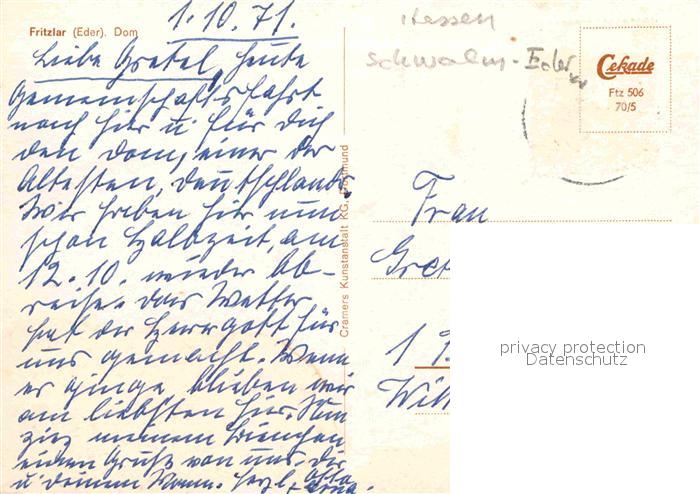 1.10.71.
Fritzlar (Eder). Dom
Liebe Gretel, heute
Gemeinschaftsfahrt
nach hier u. für Dich
den Dom, einer der
Ältesten, Deutschlands.
Wir haben hier nun
schon Halbzeit, am
12.10. wieder Ab-
reise. Das Wetter
hat der Herrgott für
uns gemacht. Wenn
es ginge blieben wir
am liebsten hier. Nun
meinem
einen Gruß von uns, Dir
u. Deinem Mann. Herzl.
Hessen
Schwalm-Eder
Cekade
Ftz 506
70/5
Cramers Kunstanstalt KG, Dortmund
Frau
Gret
1 1.
Wil
privacy protection
Datenschutz